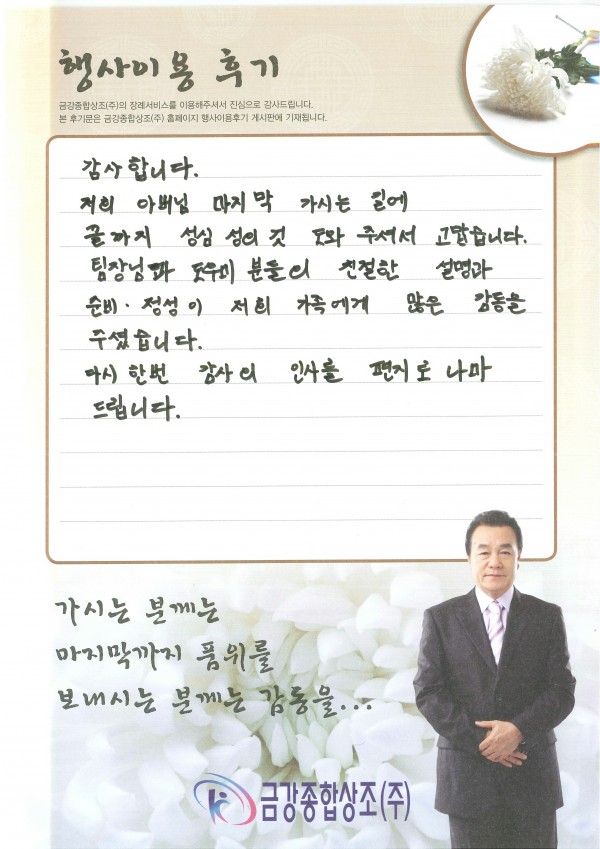 행사이용 후기
금강종합상조(주)의 장례서비스를 이용해주셔서 진심으로 감사드립니다.
본 후기문은 금강종합상조(주) 홈페이지 행사이용후기 게시판에 기재됩니다.
감사합니다.
저희 아버님 마지막 가시는 길에
끝까지 성심 성의 것 도와 주셔서 고맙습니다.
팀장님과 도우미 분들의 친절한 설명과
준비·정성이 저희 가족에게 많은 감동을
주셨습니다.
다시 한번 감사의 인사를 편지로 나마
드립니다.
가시는 분께는
마지막까지 품위를
보내시는 분께는 감동을...
금강종합상조(주)